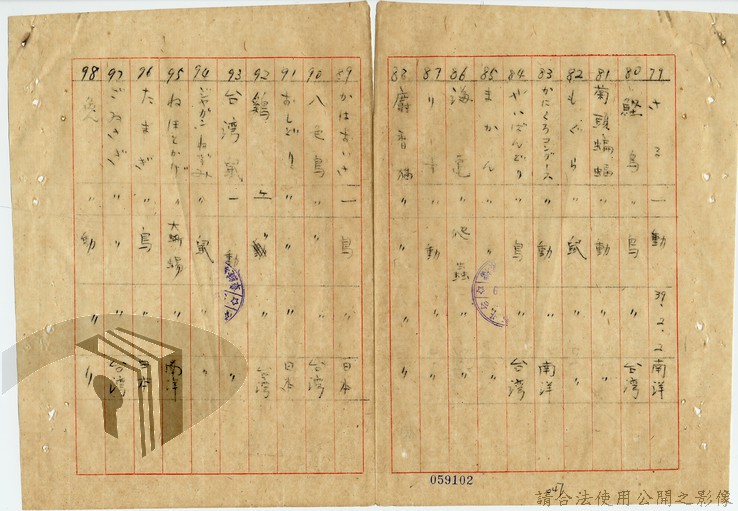 79 さる 一 動 39.2.2 南洋
80 鰹鳥 〃 鳥 〃 台湾
81 菊頭蝙蝠 〃 動 〃 〃
82 もぐら 〃 鼠 〃 〃
83 〃 動 〃 南洋
84 やいばんどり 〃 鳥 〃 台湾
85 まかん 〃 〃 〃
86 海亀 〃 爬虫 〃
87 りす 〃 動 〃 〃
88 麝香猫 〃 〃 〃
89 かはあいさ 一 鳥 〃 日本
90 八色鳥 〃 〃 〃 台湾
91 おしどり 〃 〃 〃 日本
92 鶏 〃 台湾
93 台湾鼠 一 動 〃
94 鼠 〃 〃
95 大蜥蜴 〃 南洋
96 たまぎ 〃 鳥 〃 日本
97 ごゐさぎ 〃 〃 〃 台湾
98 〃 動 〃 〃
059102
請合法使用公開之影像